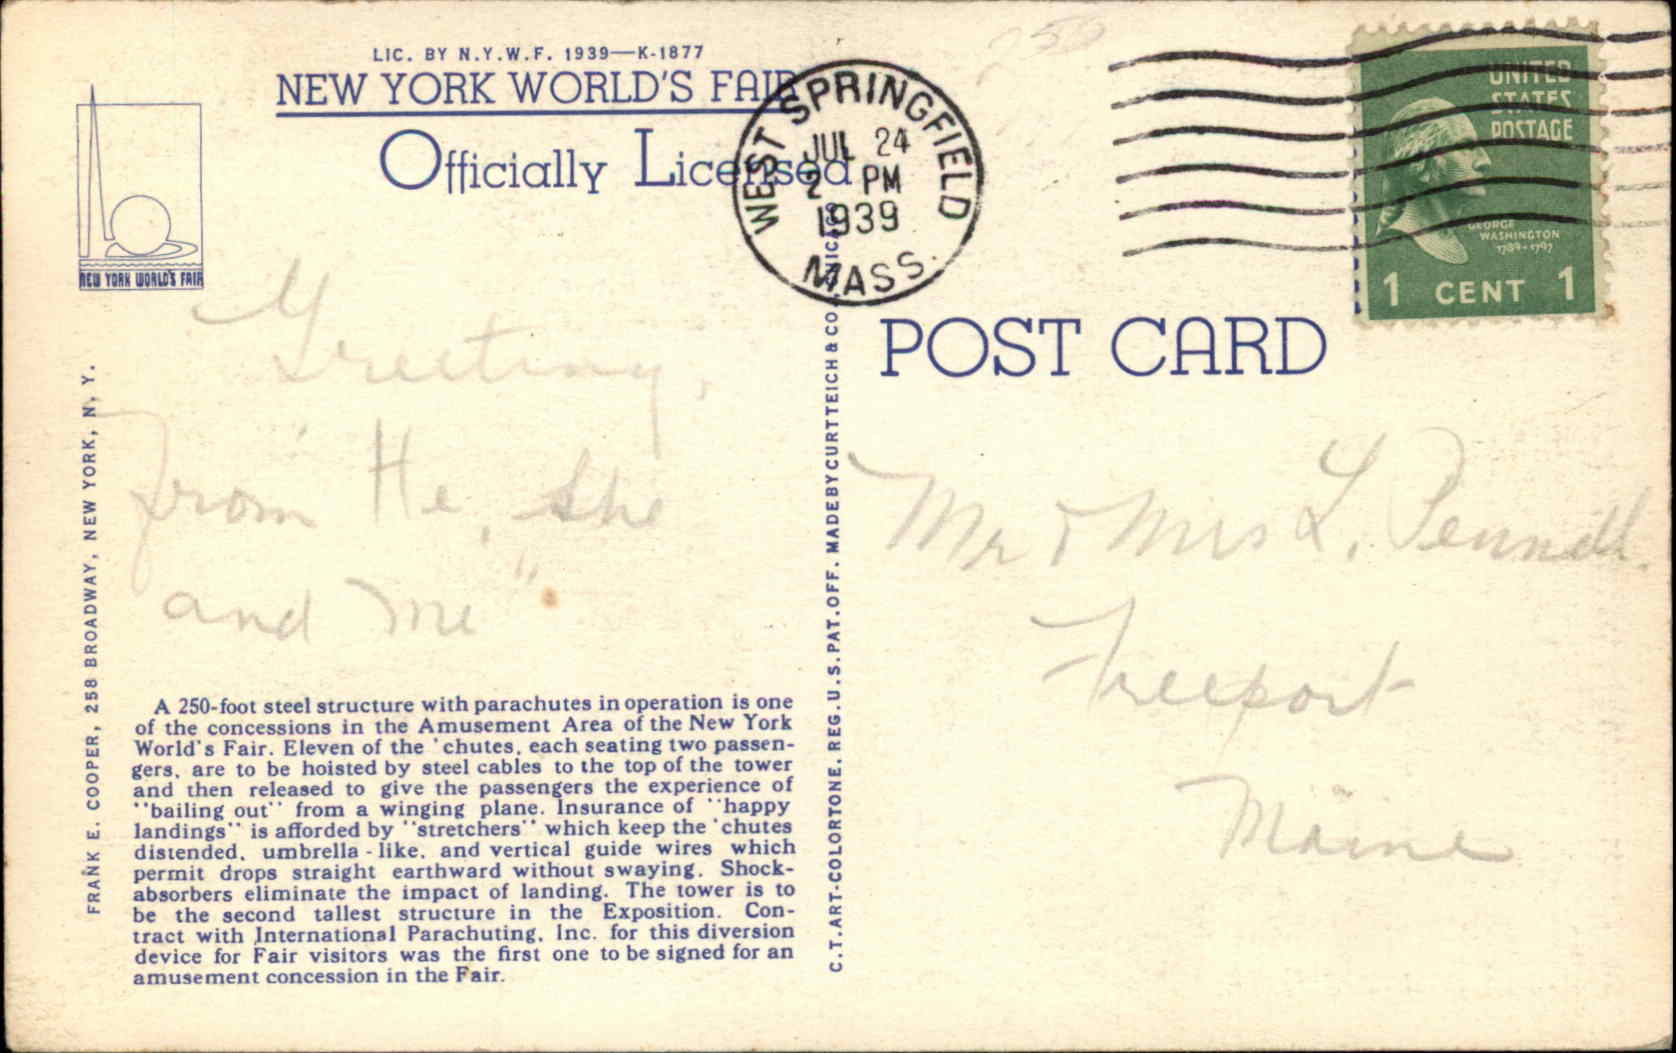 LIC. BY N.Y.W.F. 1939—K-1877
NEW YORK WORLD'S FAIR
Officially Licensed
NEW YORK WORLD'S FAIR
WEST SPRINGFIELD
JUL 24
2 PM
1939
MASS.
UNITED
STATES
POSTAGE
GEORGE
WASHINGTON
1789-1797
1 CENT 1
POST CARD
Greetings,
from "He, She
and Me"
Mr & Mrs L. Pennell.
Freeport
Maine
A 250-foot steel structure with parachutes in operation is one
of the concessions in the Amusement Area of the New York
World's Fair. Eleven of the 'chutes, each seating two passen-
gers, are to be hoisted by steel cables to the top of the tower
and then released to give the passengers the experience of
"bailing out" from a winging plane. Insurance of "happy
landings" is afforded by "stretchers" which keep the 'chutes
distended, umbrella-like, and vertical guide wires which
permit drops straight earthward without swaying. Shock-
absorbers eliminate the impact of landing. The tower is to
be the second tallest structure in the Exposition. Con-
tract with International Parachuting, Inc. for this diversion
device for Fair visitors was the first one to be signed for an
amusement concession in the Fair.
FRANK E. COOPER, 258 BROADWAY, NEW YORK, N. Y.
C.T. ART-COLORTONE. REG. U.S. PAT. OFF. MADE BY CURT TEICH & CO
250